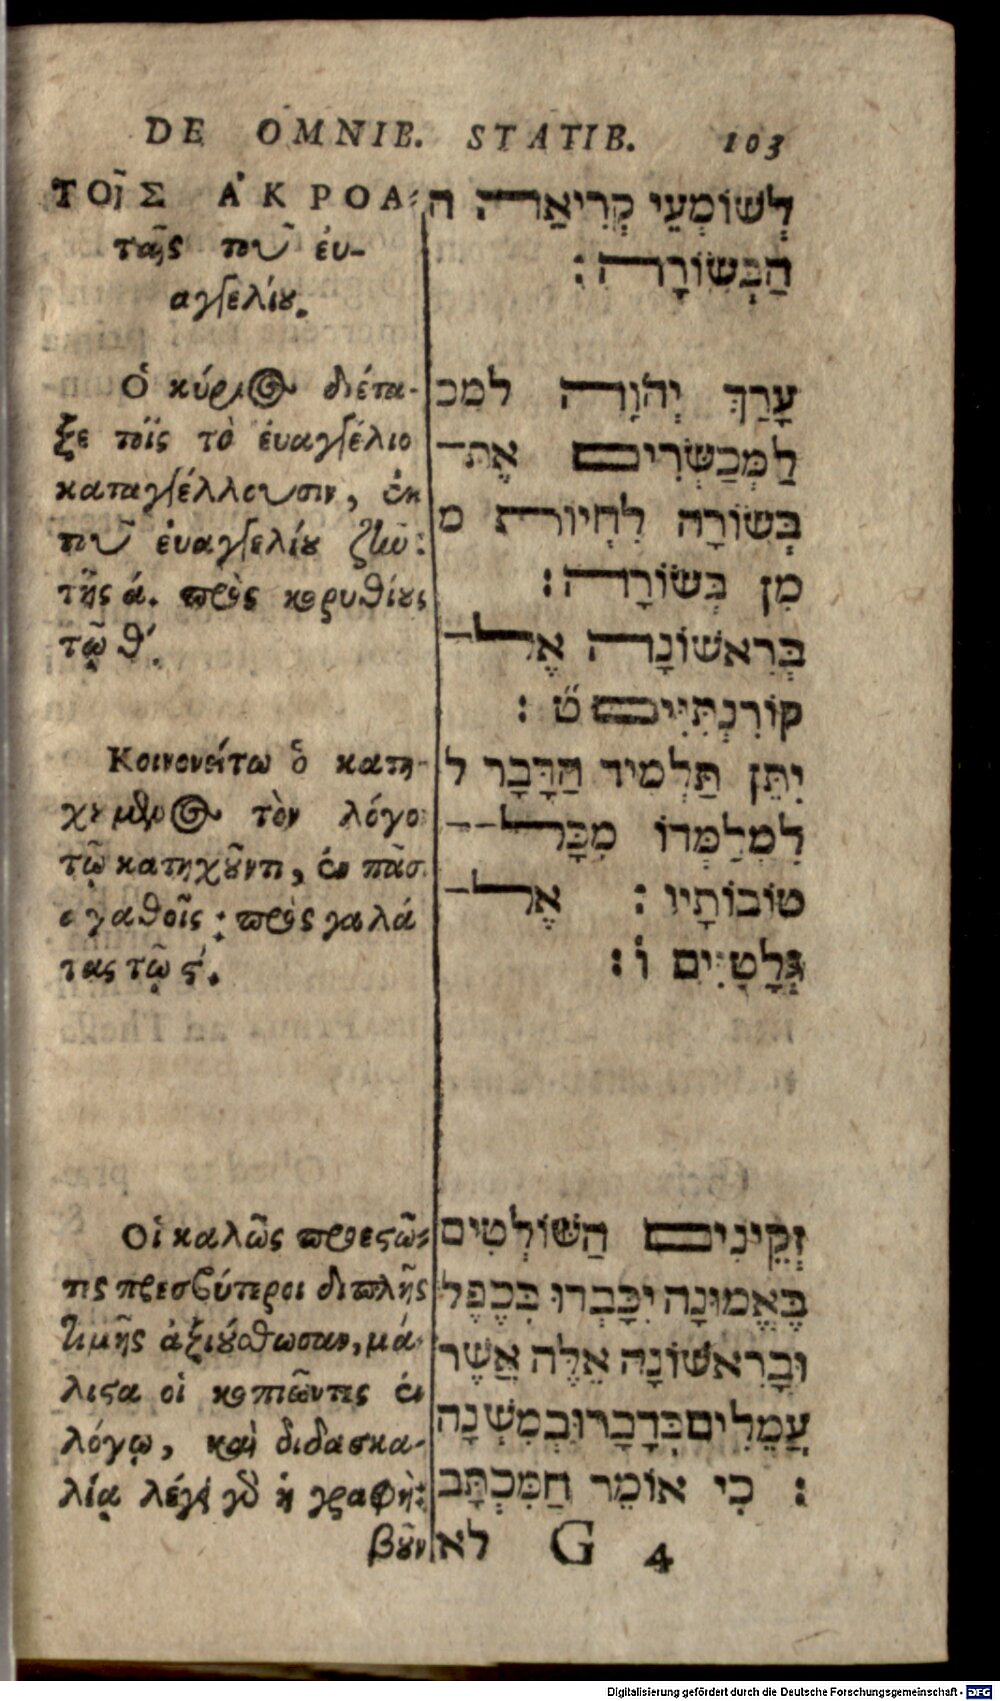 DE OMNIB. STATIB. 103
ΤΟῖΣ ἈΚΡΟΑ-
ταῖς τοῦ ἐυ-
αγγελίου.
Ὁ κύριος διέτα-
ξε τοῖς τὸ ἐυαγγέλιο
καταγγέλλουσιν, ἐκ
τοῦ ἐυαγγελίου ζῆν:
τῆς ά. πρὸς κορυθίους
τῷ θ΄.
Κοινονείτω ὁ κατη-
χούμενος τὸν λόγο
τῷ κατηχοῦντι, ἐν πᾶσ
αγαθοῖς: πρὸς γαλά
τας τῷ ϛ΄.
Οἱ καλῶς προεστῶ-
τες πρεσβύτεροι διπλῆς
τιμῆς ἀξιούσθωσαν, μά-
λιστα οἱ κοπιῶντες ἐν
λόγῳ, καὶ διδασκα-
λίᾳ λέγει γὸ ἡ γραφὴ:
βοῦν
לְשׁוֹמְעֵי קְרִיאַה ה
הַבְּשׂוֹרָה:
עָרַךְ יְהוָֹה למכ
לַמְּכַשְּׂרִים אֶת־
בְּשׂוֹרָה לִחְיוֹת מ
מִן בְּשׂוֹרָה:
בְּרִאשׁוֹנָה אֶל־
קוֹרִנְתִּיִּים ט:
יִתֵּן תַּלְמִיד הַדָּבָר ל
לִמְלַמְּדוֹ מִכָּל־־
טוֹבוֹתָיו: אֶל־
גְּלָטִיִּים ו:
זְקֵינִים הַשּׁוֹלְטִים
בֶּאֱמוּנָה יִכָּבְרוּ בְּכֶפֶל
וּבָרִאשׁוֹנָה אֵלֶּה אֲשֶׁר
עֲמֵלִים בְּדָבָר וּבְמִשְׁנָה
: כִי אוֹמֵר חַמִּכְתָּב
לא G 4
Digitalisierung gefördert durch die Deutsche Forschungsgemeinschaft - DFG